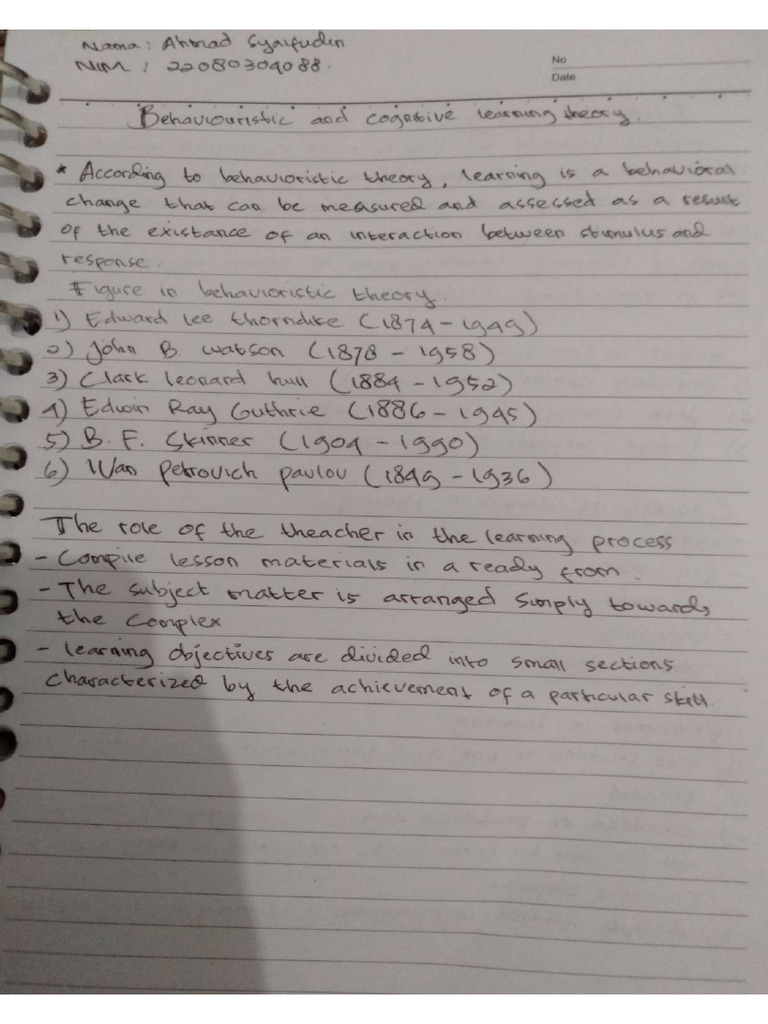 Nama: Ahmad Syaifudin
NIM : 22080304088.
No
Date
Behaviouristic and cognitive learning theory.
* According to behavioristic theory, learning is a behavioral
change that can be measured and assessed as a result
of the existance of an interaction between stimulus and
response.
Figure in behavioristic theory.
1) Edward lee thorndike (1874 - 1949)
2) John B. watson (1878 - 1958)
3) Clark leonard hull (1884 - 1952)
4) Edwin Ray Guthrie (1886 - 1945)
5) B. F. Skinner (1904 - 1990)
6) Ivan Petrovich pavlov (1849 - 1936)
The role of the theacher in the learning process
- Compile lesson materials in a ready from.
- The subject matter is arranged simply towards
the complex
- learning objectives are divided into small sections
characterized by the achievement of a particular skill.